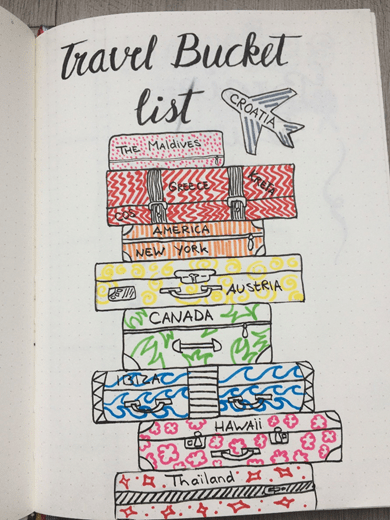 Travel Bucket
list
CROATIA
THE MALDIVES
GREECE
KRETA
COS
AMERICA
NEW YORK
AUSTRIA
CANADA
IBIZA
HAWAii
Thailand